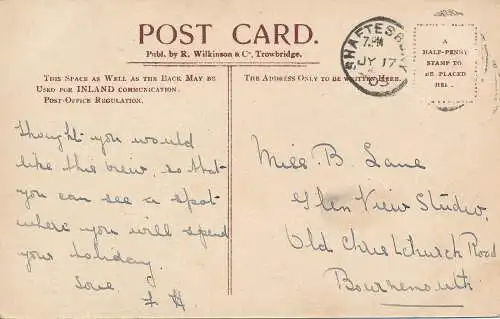 POST CARD.
Publ. by R. Wilkinson & Co, Trowbridge.
THIS SPACE AS WELL AS THE BACK MAY BE
USED FOR INLAND COMMUNICATION.
POST-OFFICE REGULATION.
THE ADDRESS ONLY TO BE WRITTEN HERE.
SHAFTESBURY
7. PM
JY 17
05
A
HALF-PENNY
STAMP TO
BE PLACED
HERE.
Thought you would
like this view, so that
you can see a spot
where you will spend
your holiday.
Love.
F H.
Miss B. Lane
Glen View Studio,
Old Christchurch Road
Bournemouth